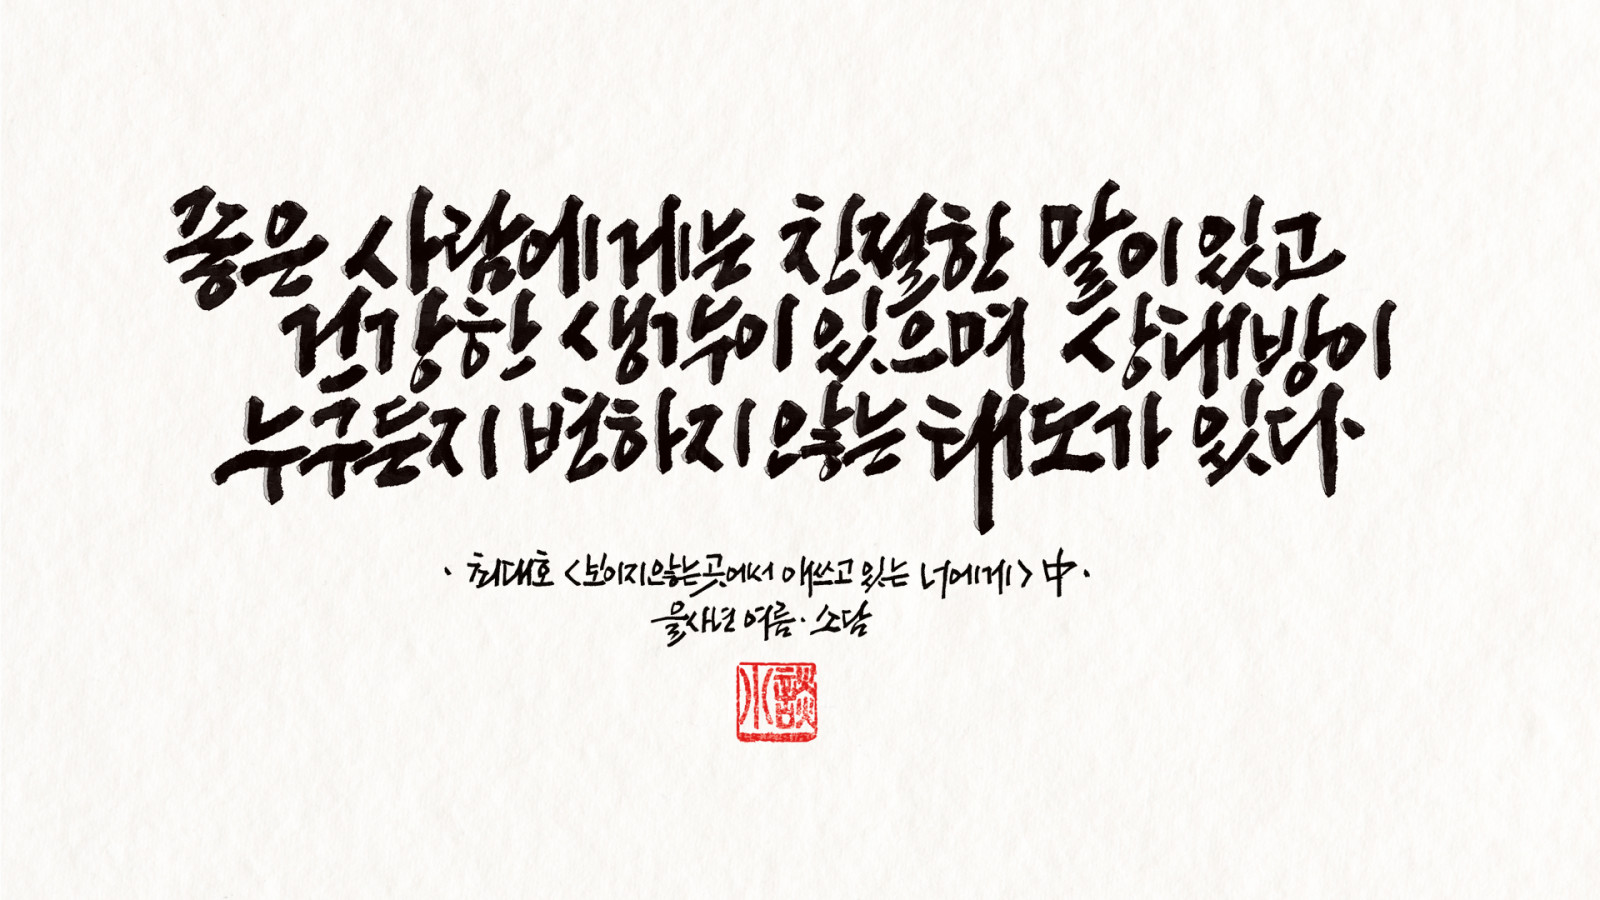 좋은 사람에게는 친절한 말이 있고
건강한 생각이 있으며 상대방이
누구든지 변하지 않는 태도가 있다.
· 최대호 <보이지않는곳에서 애쓰고 있는 너에게> 中 ·
을사년 여름 · 소담
小談